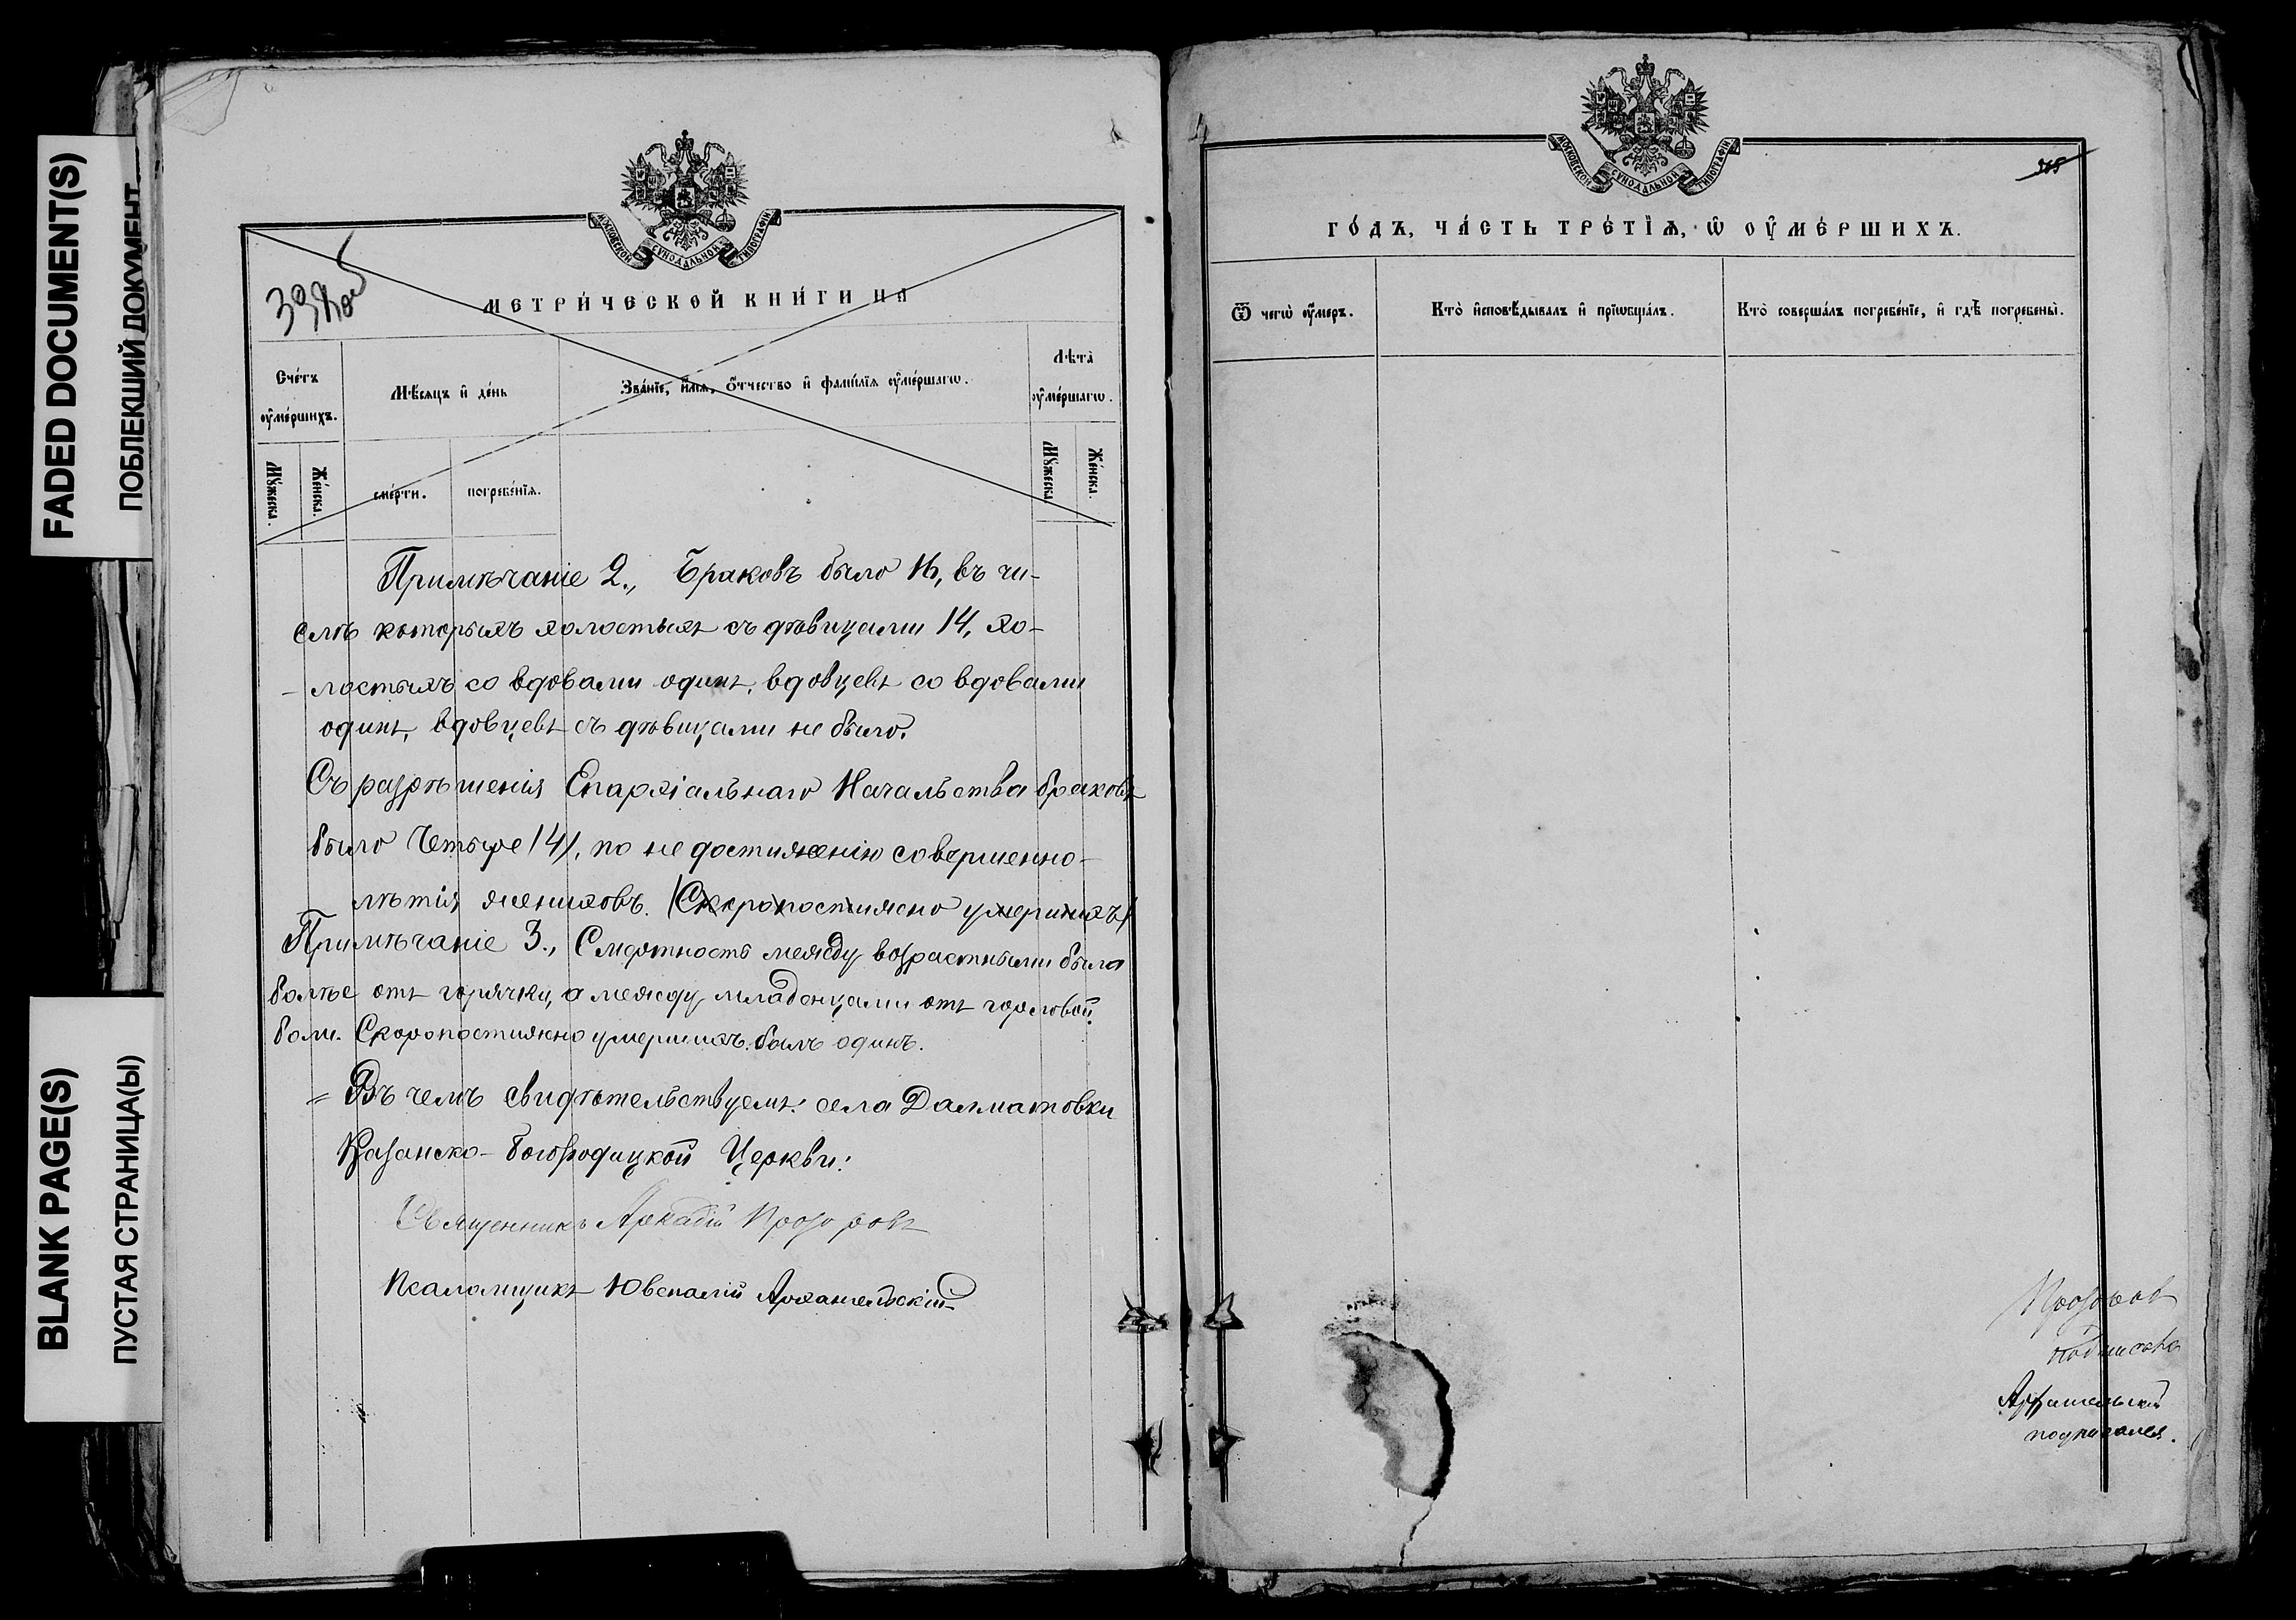 FADED DOCUMENT(S)
ПОБЛЕКШИЙ ДОКУМЕНТ
BLANK PAGE(S)
ПУСТАЯ СТРАНИЦА(Ы)
МОСКОВСКОЙ СУНОДАЛЬНОЙ ТИПОГРАФІИ
МЕТРИ́ЧЕСКОЙ КНИ́ГИ НА
Сче́тъ ᲂу҆ме́ршихъ.
Мѣ́сяцъ и҆ де́нь
Зва́нїе, и҆́мя, ѻ҆́тчество и҆ фами́лїя ᲂу҆ме́ршагѡ.
Лѣта̀ ᲂу҆ме́ршагѡ.
Мꙋ́жеска.
Же́нска.
сме́рти.
погребе́нїя.
Мꙋ́жеска.
Же́нска.
Примѣчаніе 2., Браковъ было 16, въ чи-
слѣ которыхъ холостыхъ съ дѣвицами 14, хо-
лостыхъ со вдовами одинъ, вдовцевъ со вдовами
одинъ, вдовцевъ съ дѣвицами не было.
Съ разрѣшенія Епархіальнаго Начальства браковъ
было Четыре /4/, по не достиженію совершенно-
лѣтія жениховъ. /Скоропостижно умершихъ/
Примѣчаніе 3., Смертность между возрастными была
болѣе отъ горячки, а между младенцами отъ горловой
боли. Скоропостижно умершихъ былъ одинъ.
Въ чемъ свидѣтельствуемъ: села Далматовки
Казанско-Богородицкой Церкви:
Священникъ Аркадій Прозоровъ
Псаломщикъ Ювеналій Архангельскій
МОСКОВСКОЙ СУНОДАЛЬНОЙ ТИПОГРАФІИ
365
ГО́ДЪ, ЧА́СТЬ ТРЕ́ТЇѦ, Ѡ҆ ОУ҆МЕ́РШИХЪ.
Ѿ чегѡ̀ ᲂу҆́меръ.
Кто̀ и҆сповѣ́дывалъ и҆ прїѡбща́лъ.
Кто̀ соверша́лъ погребе́нїе, и҆ гдѣ̀ погребены̀.
Прозоров
Архангельскій
подписался.